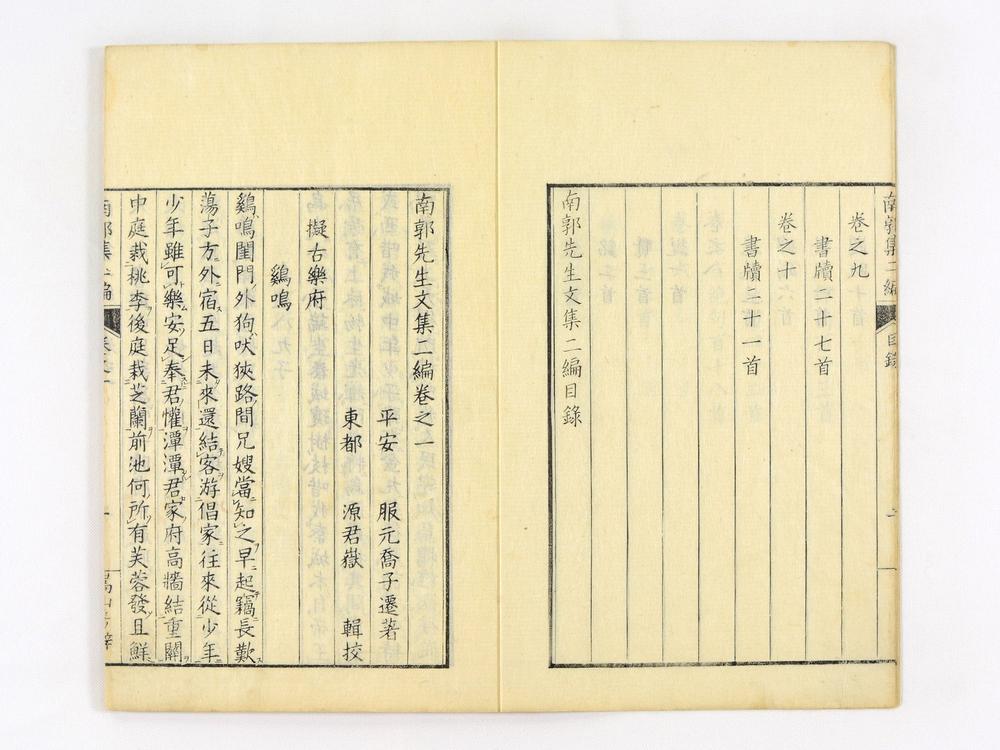 南郭集二編
目錄
卷之九
書牘二十七首
卷之十
書牘二十一首
南郭先生文集二編目錄
南郭先生文集二編卷之一
平安 服元喬子遷著
東都 源君嶽 輯挍
擬古樂府
鷄鳴
鷄鳴閨門外狗吠狹路間兄嫂當知之早起竊長歎
蕩子方外宿五日未來還結客游倡家往來從少年
少年雖可樂安足奉君懽潭潭君家府高牆結重關
中庭栽桃李後庭栽芝蘭前池何所有芙蓉發且鮮